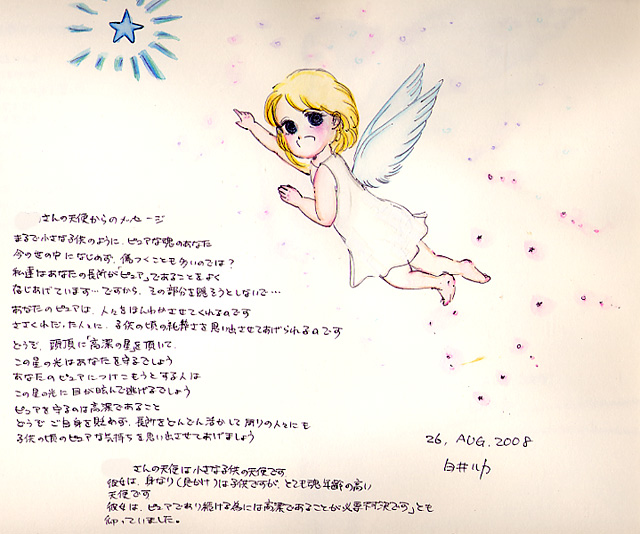 さんの天使からのメッセージ
まるで小さな子供のように、ピュアな魂のあなた
今の世の中になじめず、傷つくことも多いのでは?
私達はあなたの長所が「ピュア」であることをよく
存じあげています…ですから、その部分を隠そうとしないで…
あなたのピュアは、人々をほんわかさせてくれるのです
ささくれだった人々に、子供の頃の純粋さを思い出させてあげられるのです
どうぞ、頭頂に「高潔の星」を頂いて、
この星の光はあなたを守るでしょう
あなたのピュアにつけこもうとする人は
この星の光に目が眩んで逃げるでしょう
ピュアを守るのは高潔であること
どうぞご自身を貶めず、長所をどんどん活かして周りの人々にも
子供の頃のピュアな気持ちを思い出させてあげましょう
26, AUG. 2008
白井ルカ
さんの天使は小さな子供の天使です
彼女は、身なり(見かけ)は子供ですが、とても魂年齢の高い
天使です
彼女は、「ピュアであり続ける為には高潔であることが必要不可欠です」とも
仰っていました。